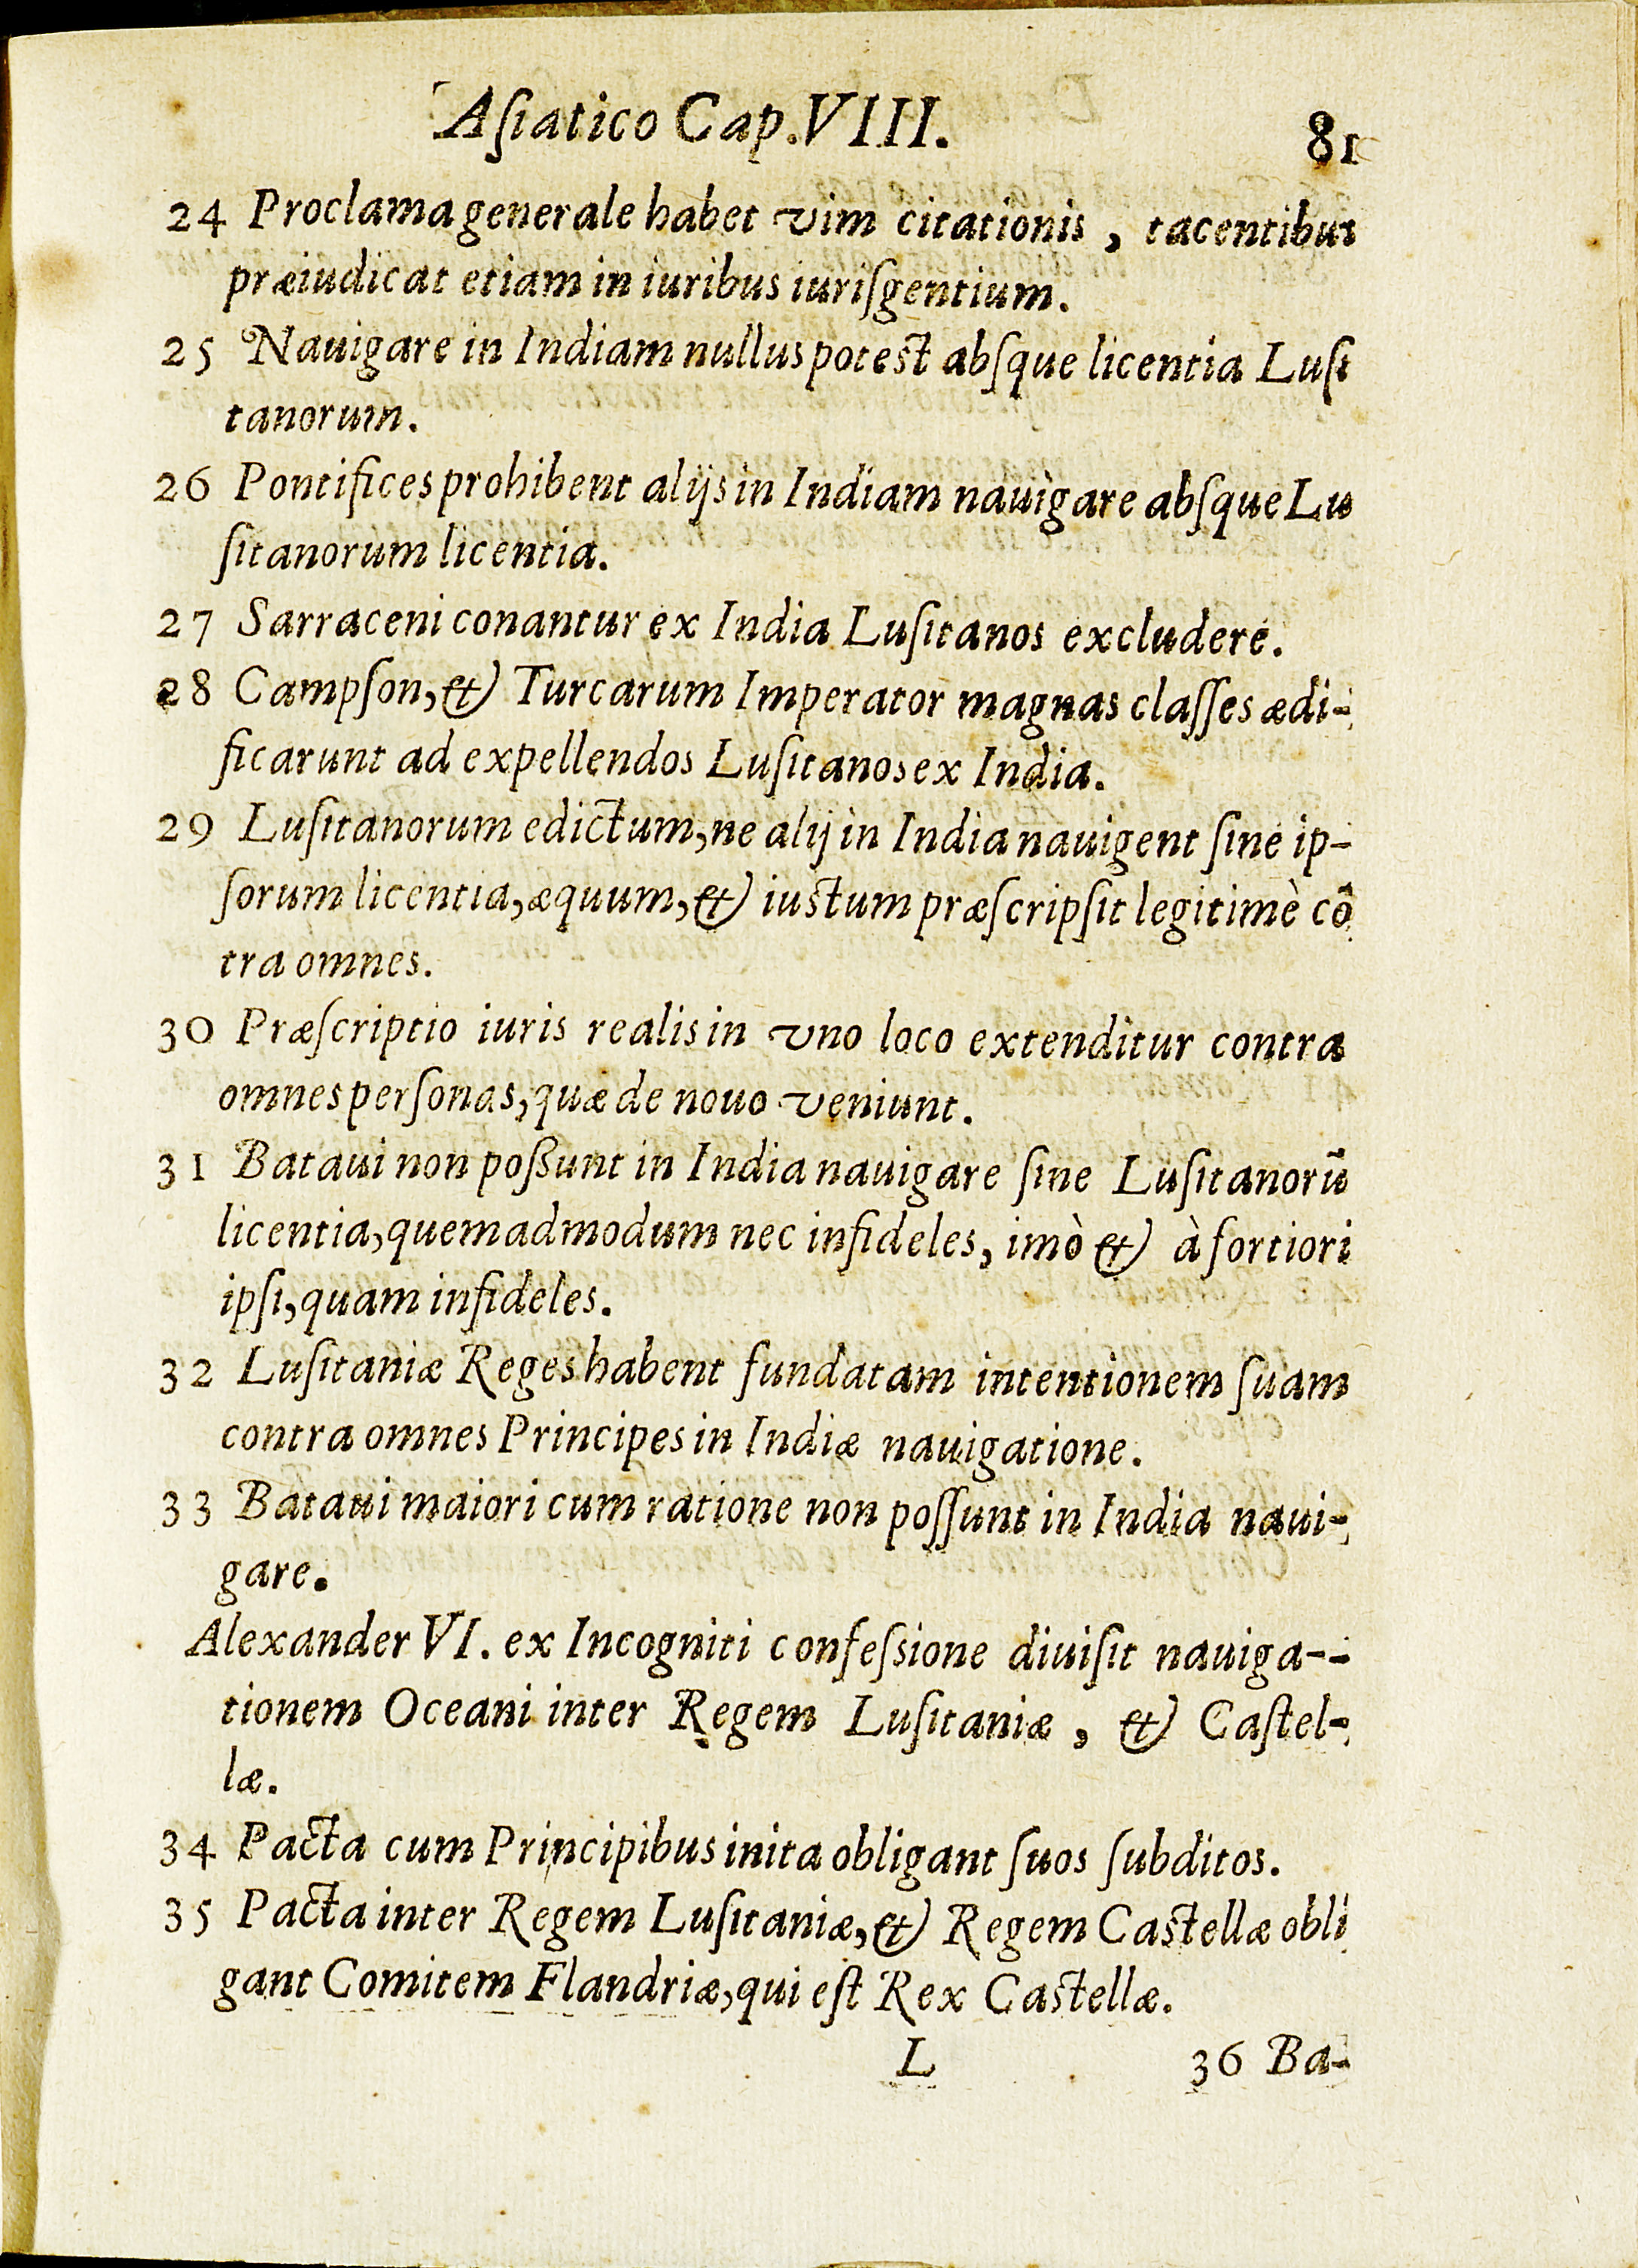 Aſiatico Cap.VIII. 81
24 Proclama generale habet vim citationis , tacentibus
præiudicat etiam in iuribus iuriſgentium.
25 Nauigare in Indiam nullus potest abſque licentia Luſi
tanorum.
26 Pontifices prohibent alijs in Indiam nauigare abſque Lu
ſitanorum licentia.
27 Sarraceni conantur ex India Luſitanos excludere.
28 Campſon, & Turcarum Imperator magnas claſſes ædi-
ficarunt ad expellendos Luſitanos ex India.
29 Luſitanorum edictum, ne alij in India nauigent ſine ip-
ſorum licentia, æquum, & iustum præſcripſit legitimè cõ
tra omnes.
30 Præſcriptio iuris realis in vno loco extenditur contra
omnes perſonas, quæ de nouo veniunt.
31 Bataui non poßunt in India nauigare ſine Luſitanorũ
licentia, quemadmodum nec infideles, imò & à fortiori
ipſi, quam infideles.
32 Luſitaniæ Reges habent fundatam intentionem ſuam
contra omnes Principes in Indiæ nauigatione.
33 Bataui maiori cum ratione non poſſunt in India naui-
gare.
Alexander VI. ex Incogniti confeſsione diuiſit nauiga--
tionem Oceani inter Regem Luſitaniæ , & Caſtel-
læ.
34 Pacta cum Principibus inita obligant ſuos ſubditos.
35 Pacta inter Regem Luſitaniæ, & Regem Castellæ obli
gant Comitem Flandriæ, qui eſt Rex Castellæ.
L 36 Ba-